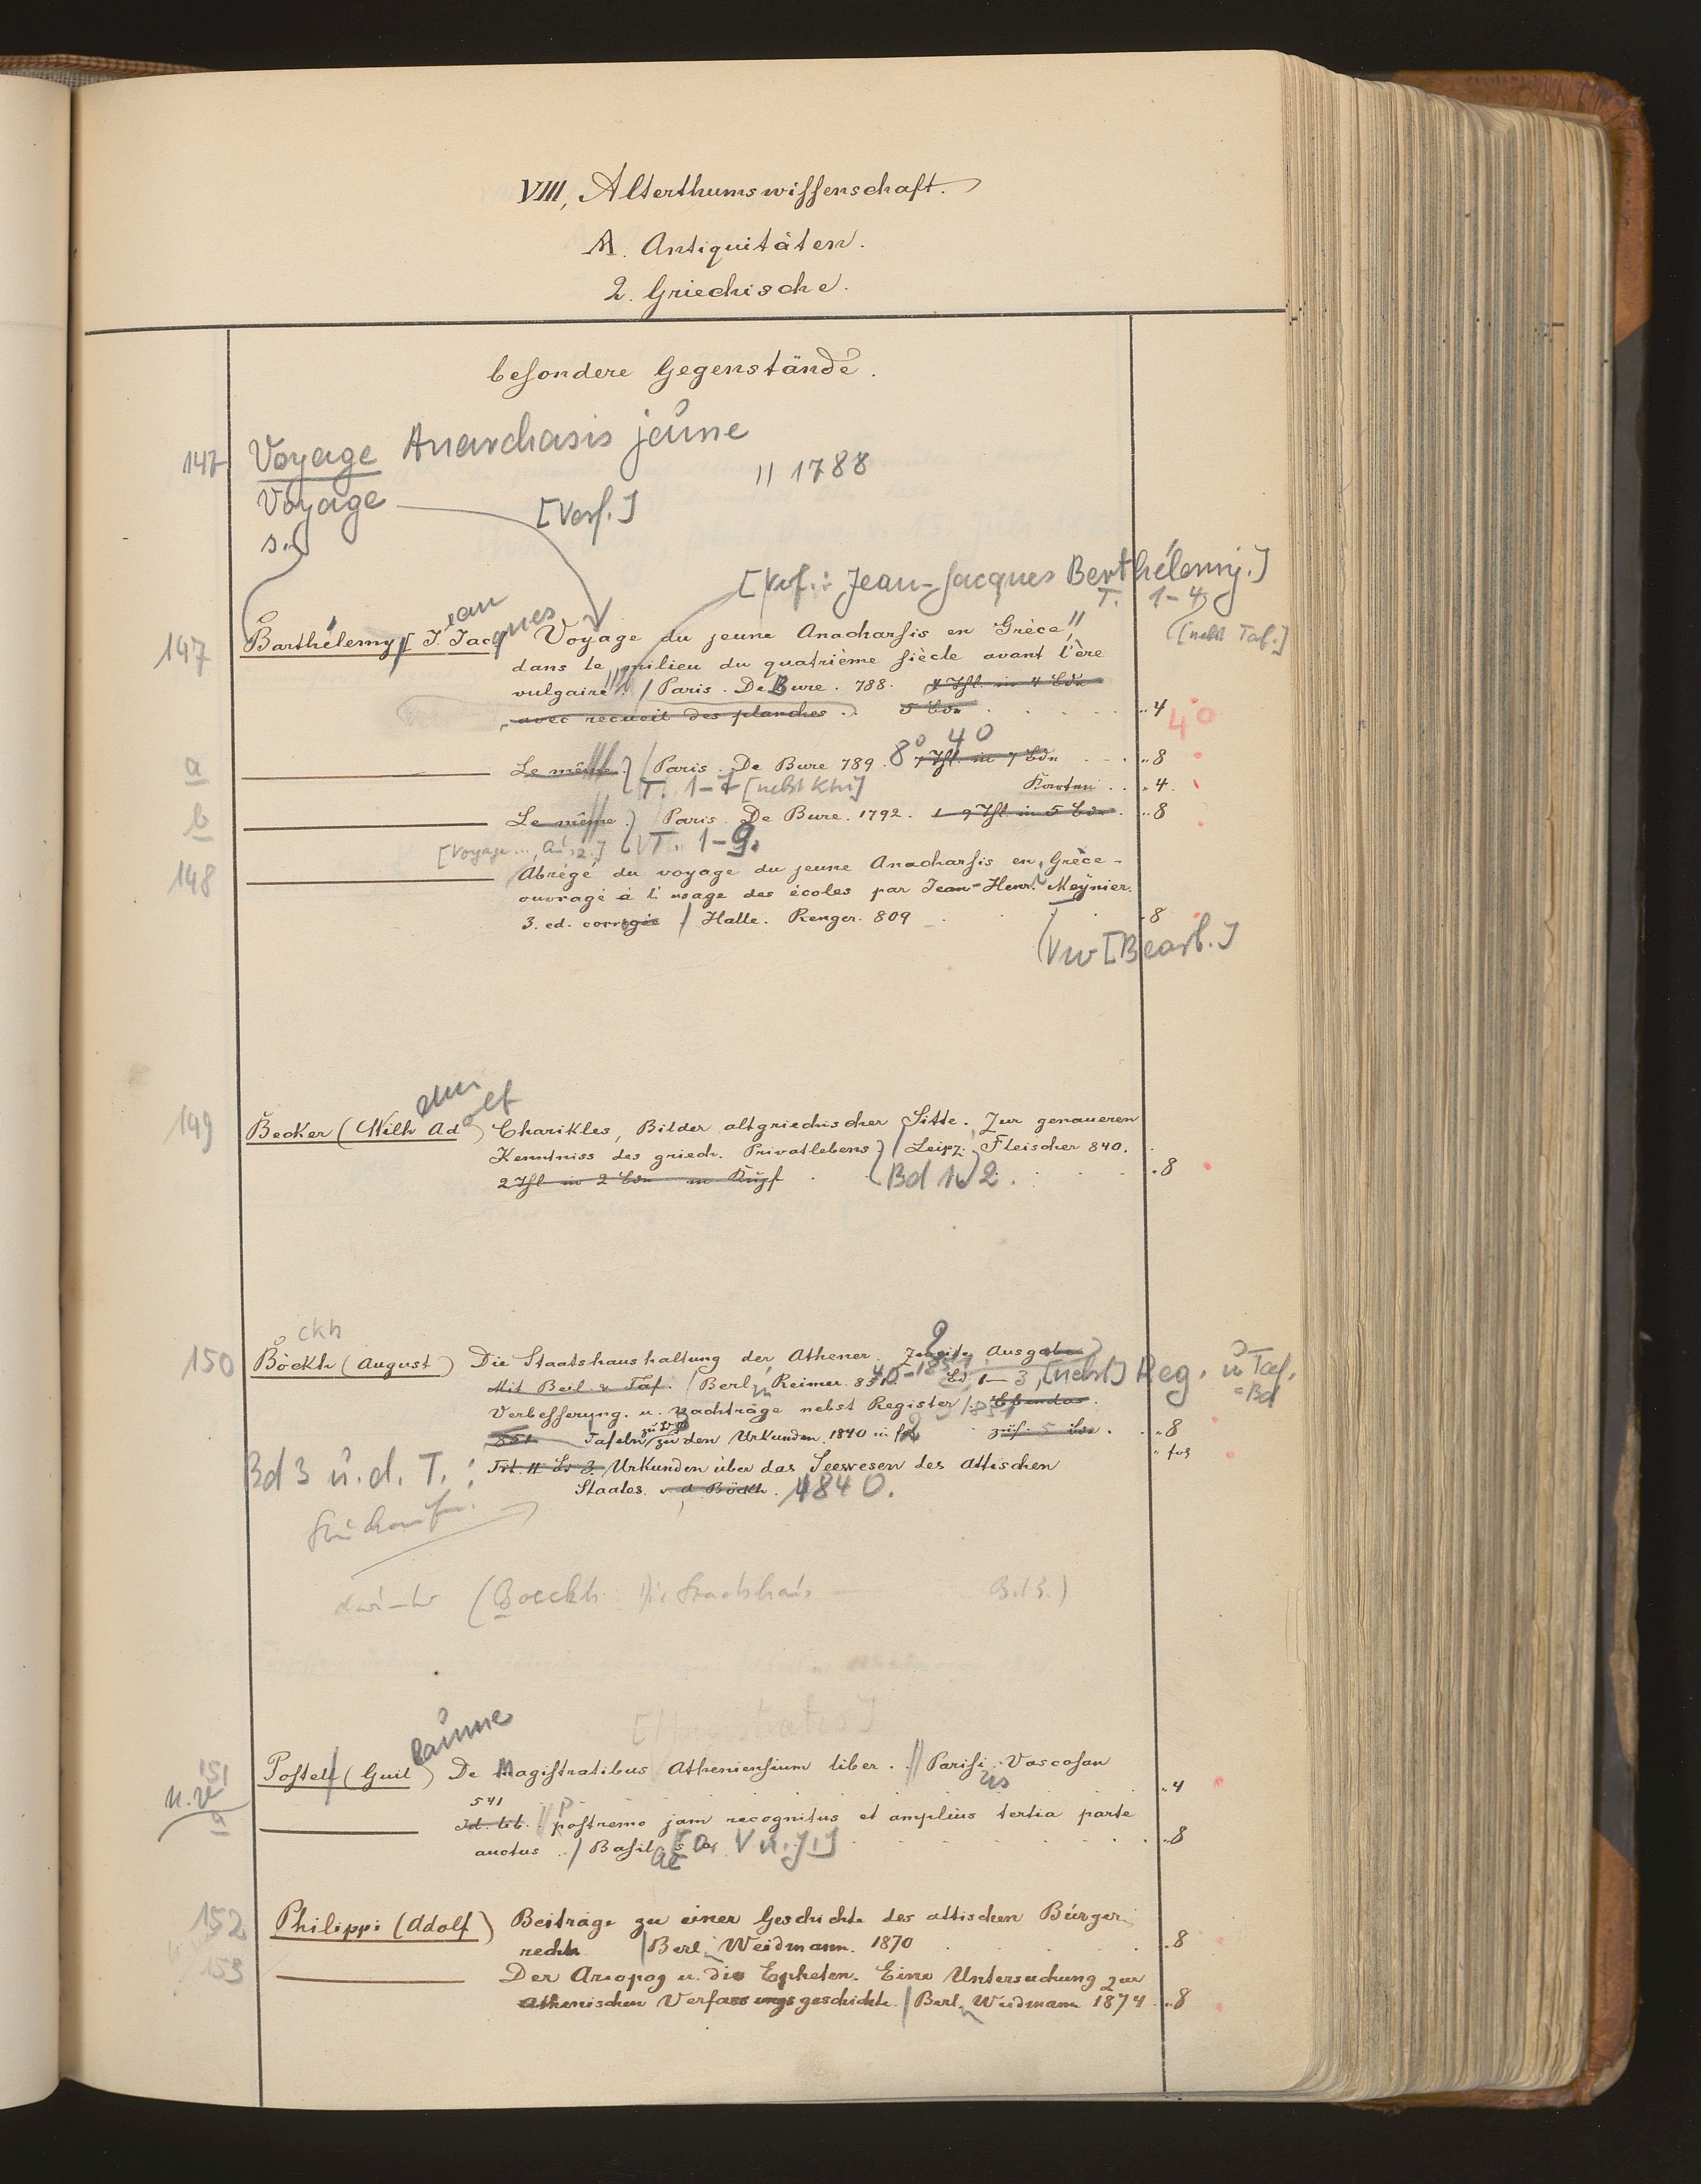 VIII, Alterthumswissenschaft.
A. Antiquitäten.
2. Griechische.
besondere Gegenstände.
147 Voyage Anarchasis jeune
" 1788
Voyage [Verf.]
s.
[Verf.: Jean-Jacques Barthélemy.]
T. 1-4,
[nebst Taf.]
147 Barthélemy [J. Jacques Voyage du jeune Anacharsis en Grèce
dans le milieu du quatrième siècle avant l'ère
vulgaire. / Paris. De Bure. 788. 4 Thl. in 4 Bdn
avec recueil des planches. 5 Bdn ,,4 4°
a Le même. / Paris. De Bure 789. 8° 4° 7 Thl. in 7 Bdn ,,8
T. 1-7 [nebst Ktn] Karten ,,4.
b Le même. Paris. De Bure. 1792. 1-9 Thl in 5 Bdn. ,,8
[Voyage..., T. 1-9.
148 Abrégé du voyage du jeune Anacharsis en Grèce-
ouvragé à l'usage des écoles par Jean-Henr. Meynier.
3. ed. corrigée / Halle. Renger. 809 ,,8
Vw [Bearb.]
149 Becker (Wilh Ad) Charikles, Bilder altgriechischer Sitte. Zur genaueren
elm olf
Kenntniss des griech. Privatlebens / Leipz. Fleischer 840.
2 Thl in 2 Bdn m Kupf Bd 1. 2. ,,8
ckh
150 Böckh (August) Die Staatshaushaltung der Athener. Zweite Ausgabe
Mit Beil. u. Taf. / Berl. Reimer. 851. Bd 1-3, [nebst] Reg. u Taf.
=Bd
Verbesserung. u. Nachträge nebst Register. Ebendas.
851 Tafeln zu den Urkunden. 1840 in f zus. 5 Bde. ,,8
,, fol
Bd 3 u. d. T.: Tit. II Bd 3. Urkunden über das Seewesen des Attischen
Staates. v. A. Böckh. 1840.
(Boeckh: Die Staatshaus — Bd 3.)
[Magistratus]
151 Postell (Guil) De Magistratibus Atheniensium liber. // Parisi. Vascosan
laume
541 ,,4
a Id. lib. postremo jam recognitus et amplius tertia parte
auctus / Basil ,,8
152 Philippi (Adolf) Beiträge zu einer Geschichte des attischen Bürger
rechts / Berl. Weidmann. 1870 ,,8
153 Der Areopag u. die Epheten. Eine Untersuchung zur
athenischen Verfassungsgeschichte. / Berl. Weidmann 1874 ,,8